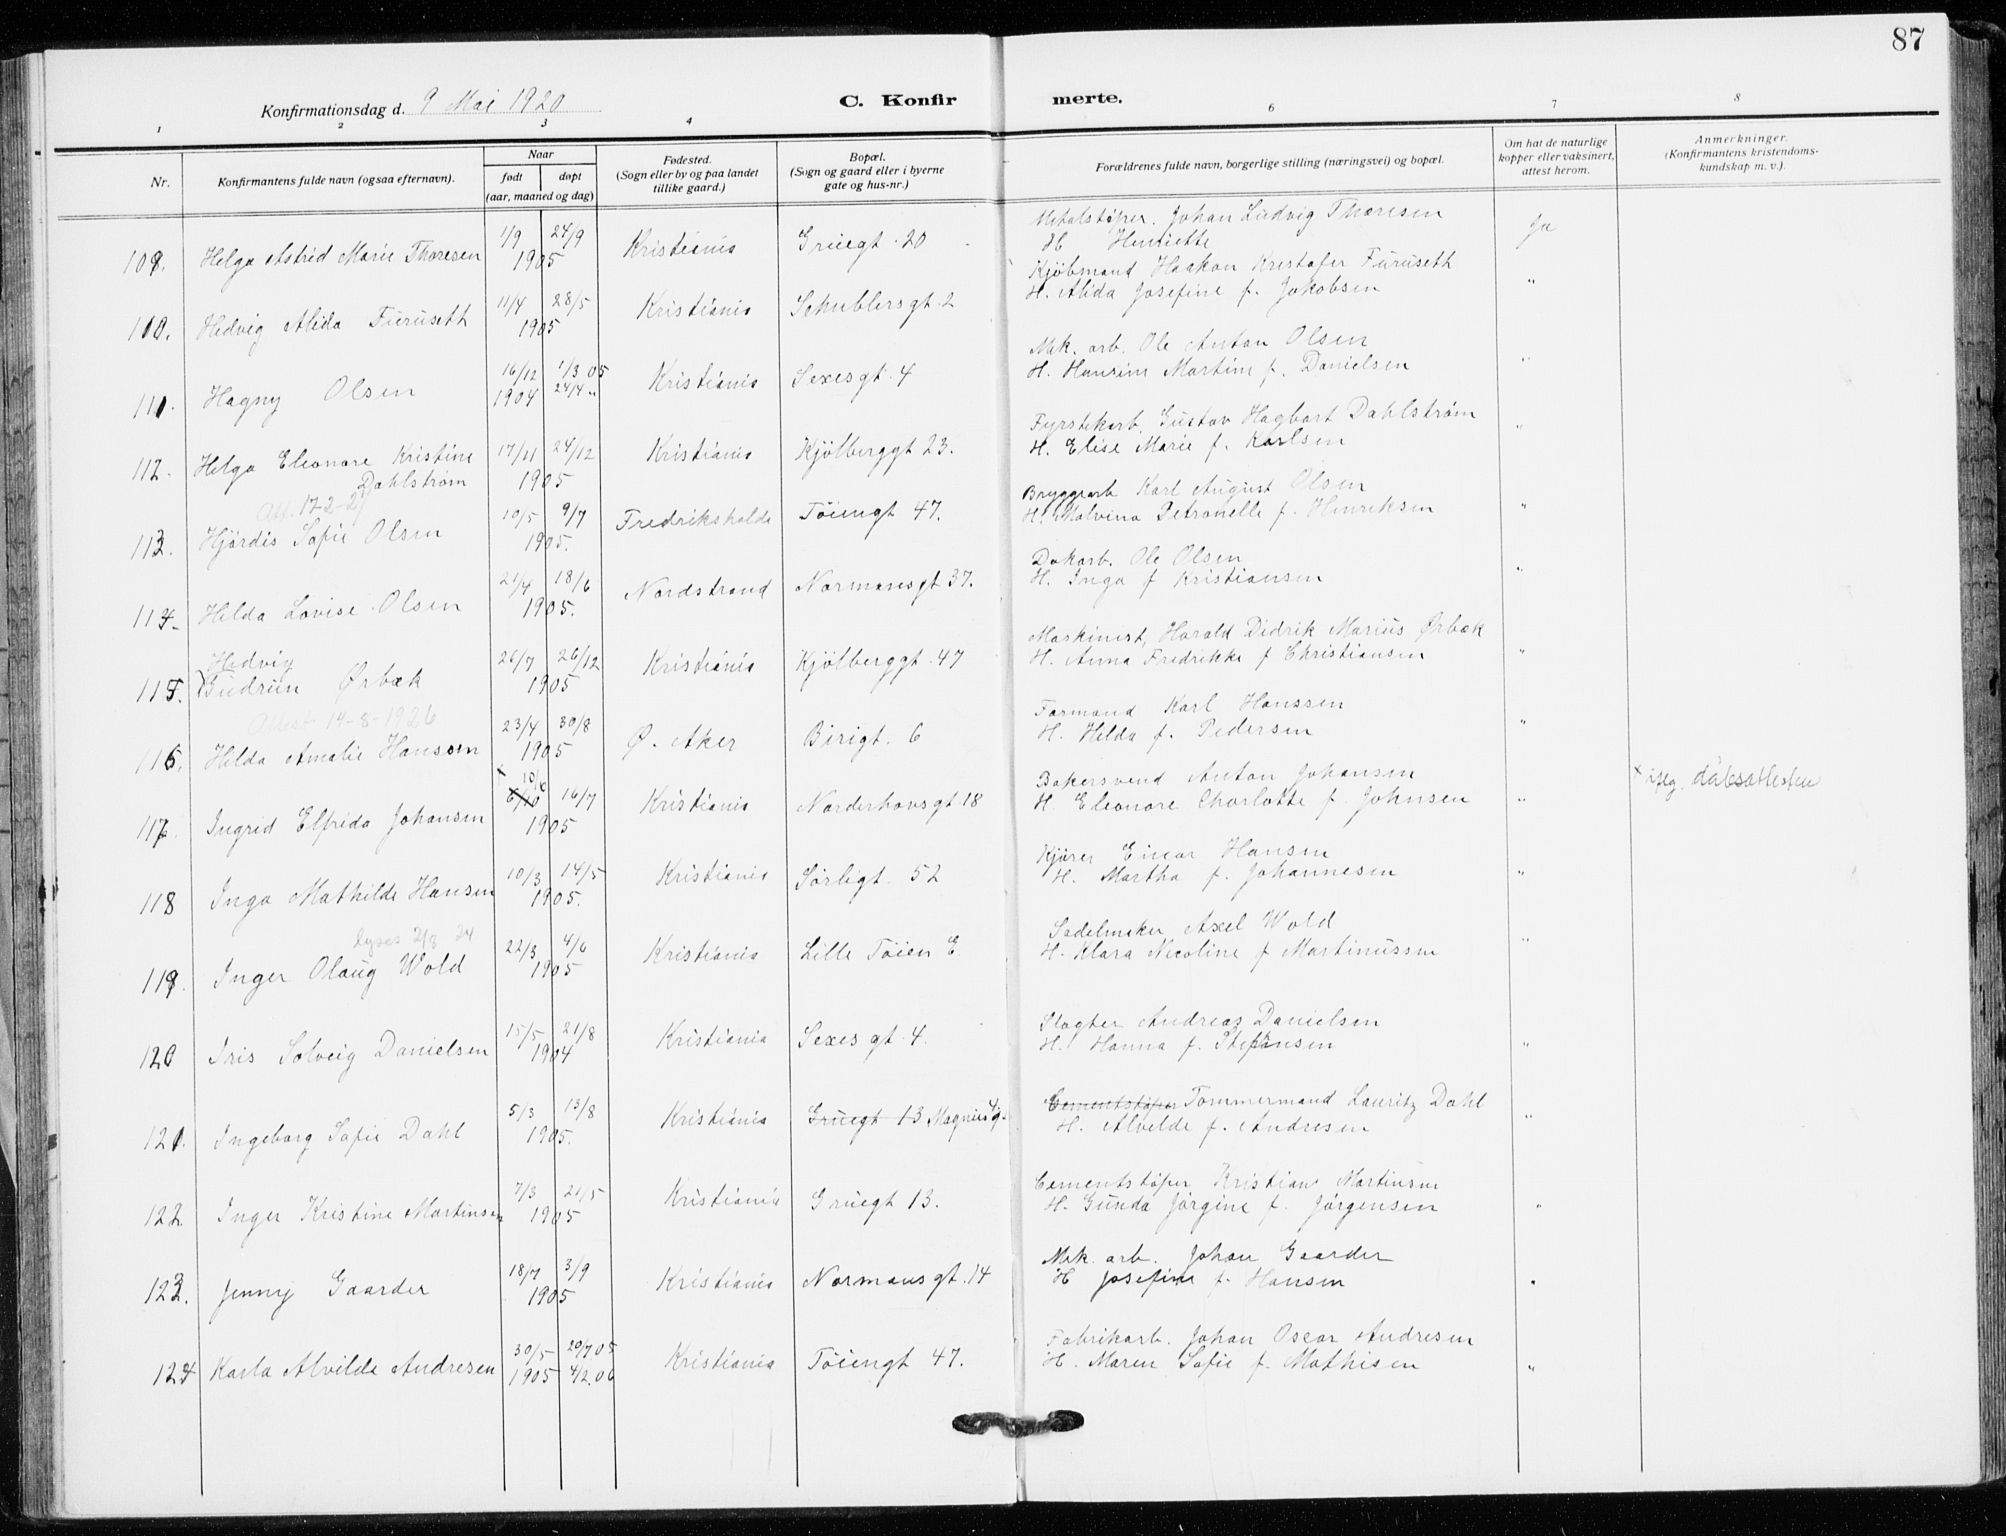 87
Konfirmationsdag d. 9 Mai 1920
C. Konfir merte.
1 2 3 4 6 7 8
Nr.
Konfirmantens fulde navn (ogsaa efternavn).
Naar
født døpt
(aar, maaned og dag)
Fødested.
(Sogn eller by og paa landet
tillike gaard.)
Bopæl.
(Sogn og gaard eller i byerne
gate og hus-nr.)
Forældrenes fulde navn, borgerlige stilling (næringsvei) og bopæl.
Om hat de naturlige
kopper eller vaksinert,
attest herom.
Anmerkninger.
(Konfirmantens kristendoms-
kundskap m. v.)
109. Helga Astrid Marie Thoresen 1/9 24/9 1905 Kristiania Gruegt. 20
Metalstøper. Johan Ludvig Thoresen Ja
H Henriette
110. Hedvig Alida Furuseth 11/4 28/5 1905 Kristiania Schublersgt. 2
Kjøbmand Haakon Kristofer Furuseth "
H. Alida Josefine f. Jakobsen
111. Hagny Olsen 16/12 1904 1/3 05 24/4 " Kristiania Sexesgt. 4
Mek. arb. Ole Anton Olsen "
H. Hansine Martine f. Danielsen
112. Helga Eleonore Kristine 17/11 24/12 1905 Kristiania Kjølberggt 23.
Dahlstrøm
Fyrstikarb. Gustav Hagbart Dahlstrøm "
H. Elise Marie f. Karlsen
Att. 17-2-21
113. Hjørdis Sofie Olsen 10/5 9/7 1905. Fredrikshald Tøiengt 47.
Bryggarb Karl August Olsen "
H. Malvina Petronelle f. Henriksen
114. Hilda Lovise Olsen 21/4 18/6 1905. Nordstrand Normansgt 37.
Dokarb. Ole Olsen "
H. Inga f Kristiansen
Hedvig
115. Gudrun Ørbæk 26/7 26/12 1905 Kristiania Kjølberggt. 47
Maskinist, Harald Didrik Marius Ørbæk "
H. Anna Fredrikke f Christiansen
Attest 14-8-1926
116. Hilda Amalie Hanssen 23/4 30/8 1905 Ø. Aker Birigt. 6
Formand Karl Hanssen "
H. Hilda f. Pedersen
117. Ingrid Elfrida Johansen x 10/6 6/10 16/7 1905 Kristiania Norderhovsgt. 18
Bakersvend Anton Johansen "
H. Eleonore Charlotte f. Johnsen
x ifлg. dåbsattesten
118 Inga Mathilde Hansen 10/3 14/5 1905. Kristiania Sørligt. 52
Kjører Einar Hansen "
H. Martha f. Johannesen
lyses 2/3 24
119. Inger Olaug Wold 22/3 4/6 1905 Kristiania Lille Tøien E
Sadelmaker Axel Wold "
H. Klara Nicoline f Martinussen
120 Iris Solveig Danielsen 15/5 21/8 1904 Kristiania Sexes gt. 4.
Slagter Andreas Danielsen "
H. Hanna f. Stefansen
121. Ingeborg Sofie Dahl 5/3 13/8 1905. Kristiania Gruegt 13 Magnusg.
Cementstøper Tømmermand Lauritz Dahl "
H. Alvilde f. Andresen
122. Inger Kristine Martinsen 7/3 21/5 1905 Kristiania Gruegt 13.
Cementstøper Kristian Martinsen "
H. Gunda Jørgine f. Jørgensen
123. Jenny Gaarder 18/7 3/9 1905 Kristiania Normansgt. 14
Mek. arb. Johan Gaarder "
H Josefine f. Hansen
124 Karla Alvilde Andresen 30/5 1905 20/7 05 4/2.06 Kristiania Tøiengt 47.
Fabrikarb. Johan Oscar Andresen "
H. Maren Sofie f. Mathisen